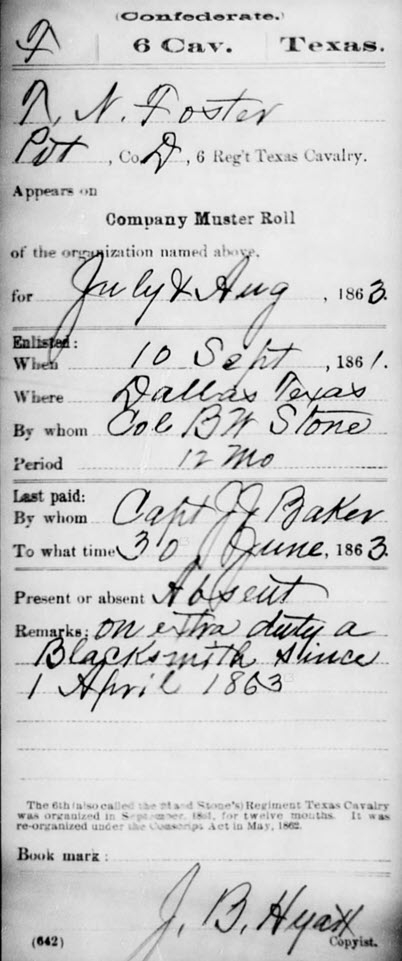 (Confederate.)
F 6 Cav. Texas.
N. Foster
Pvt, Co. D, 6 Reg't Texas Cavalry.
Appears on
Company Muster Roll
of the organization named above,
for July & Aug, 1863.
Enlisted:
When 10 Sept, 1861.
Where Dallas Texas
By whom Col B W Stone
Period 12 Mo
Last paid:
By whom Capt J J Baker
To what time 30 June, 1863.
Present or absent Absent
Remarks: on extra duty a
Blacksmith since
1 April 1863
The 6th (also called the 2d and Stone's) Regiment Texas Cavalry
was organized in September, 1861, for twelve months. It was
re-organized under the Conscript Act in May, 1862.
Book mark:
J. B. Hyatt
(642) Copyist.